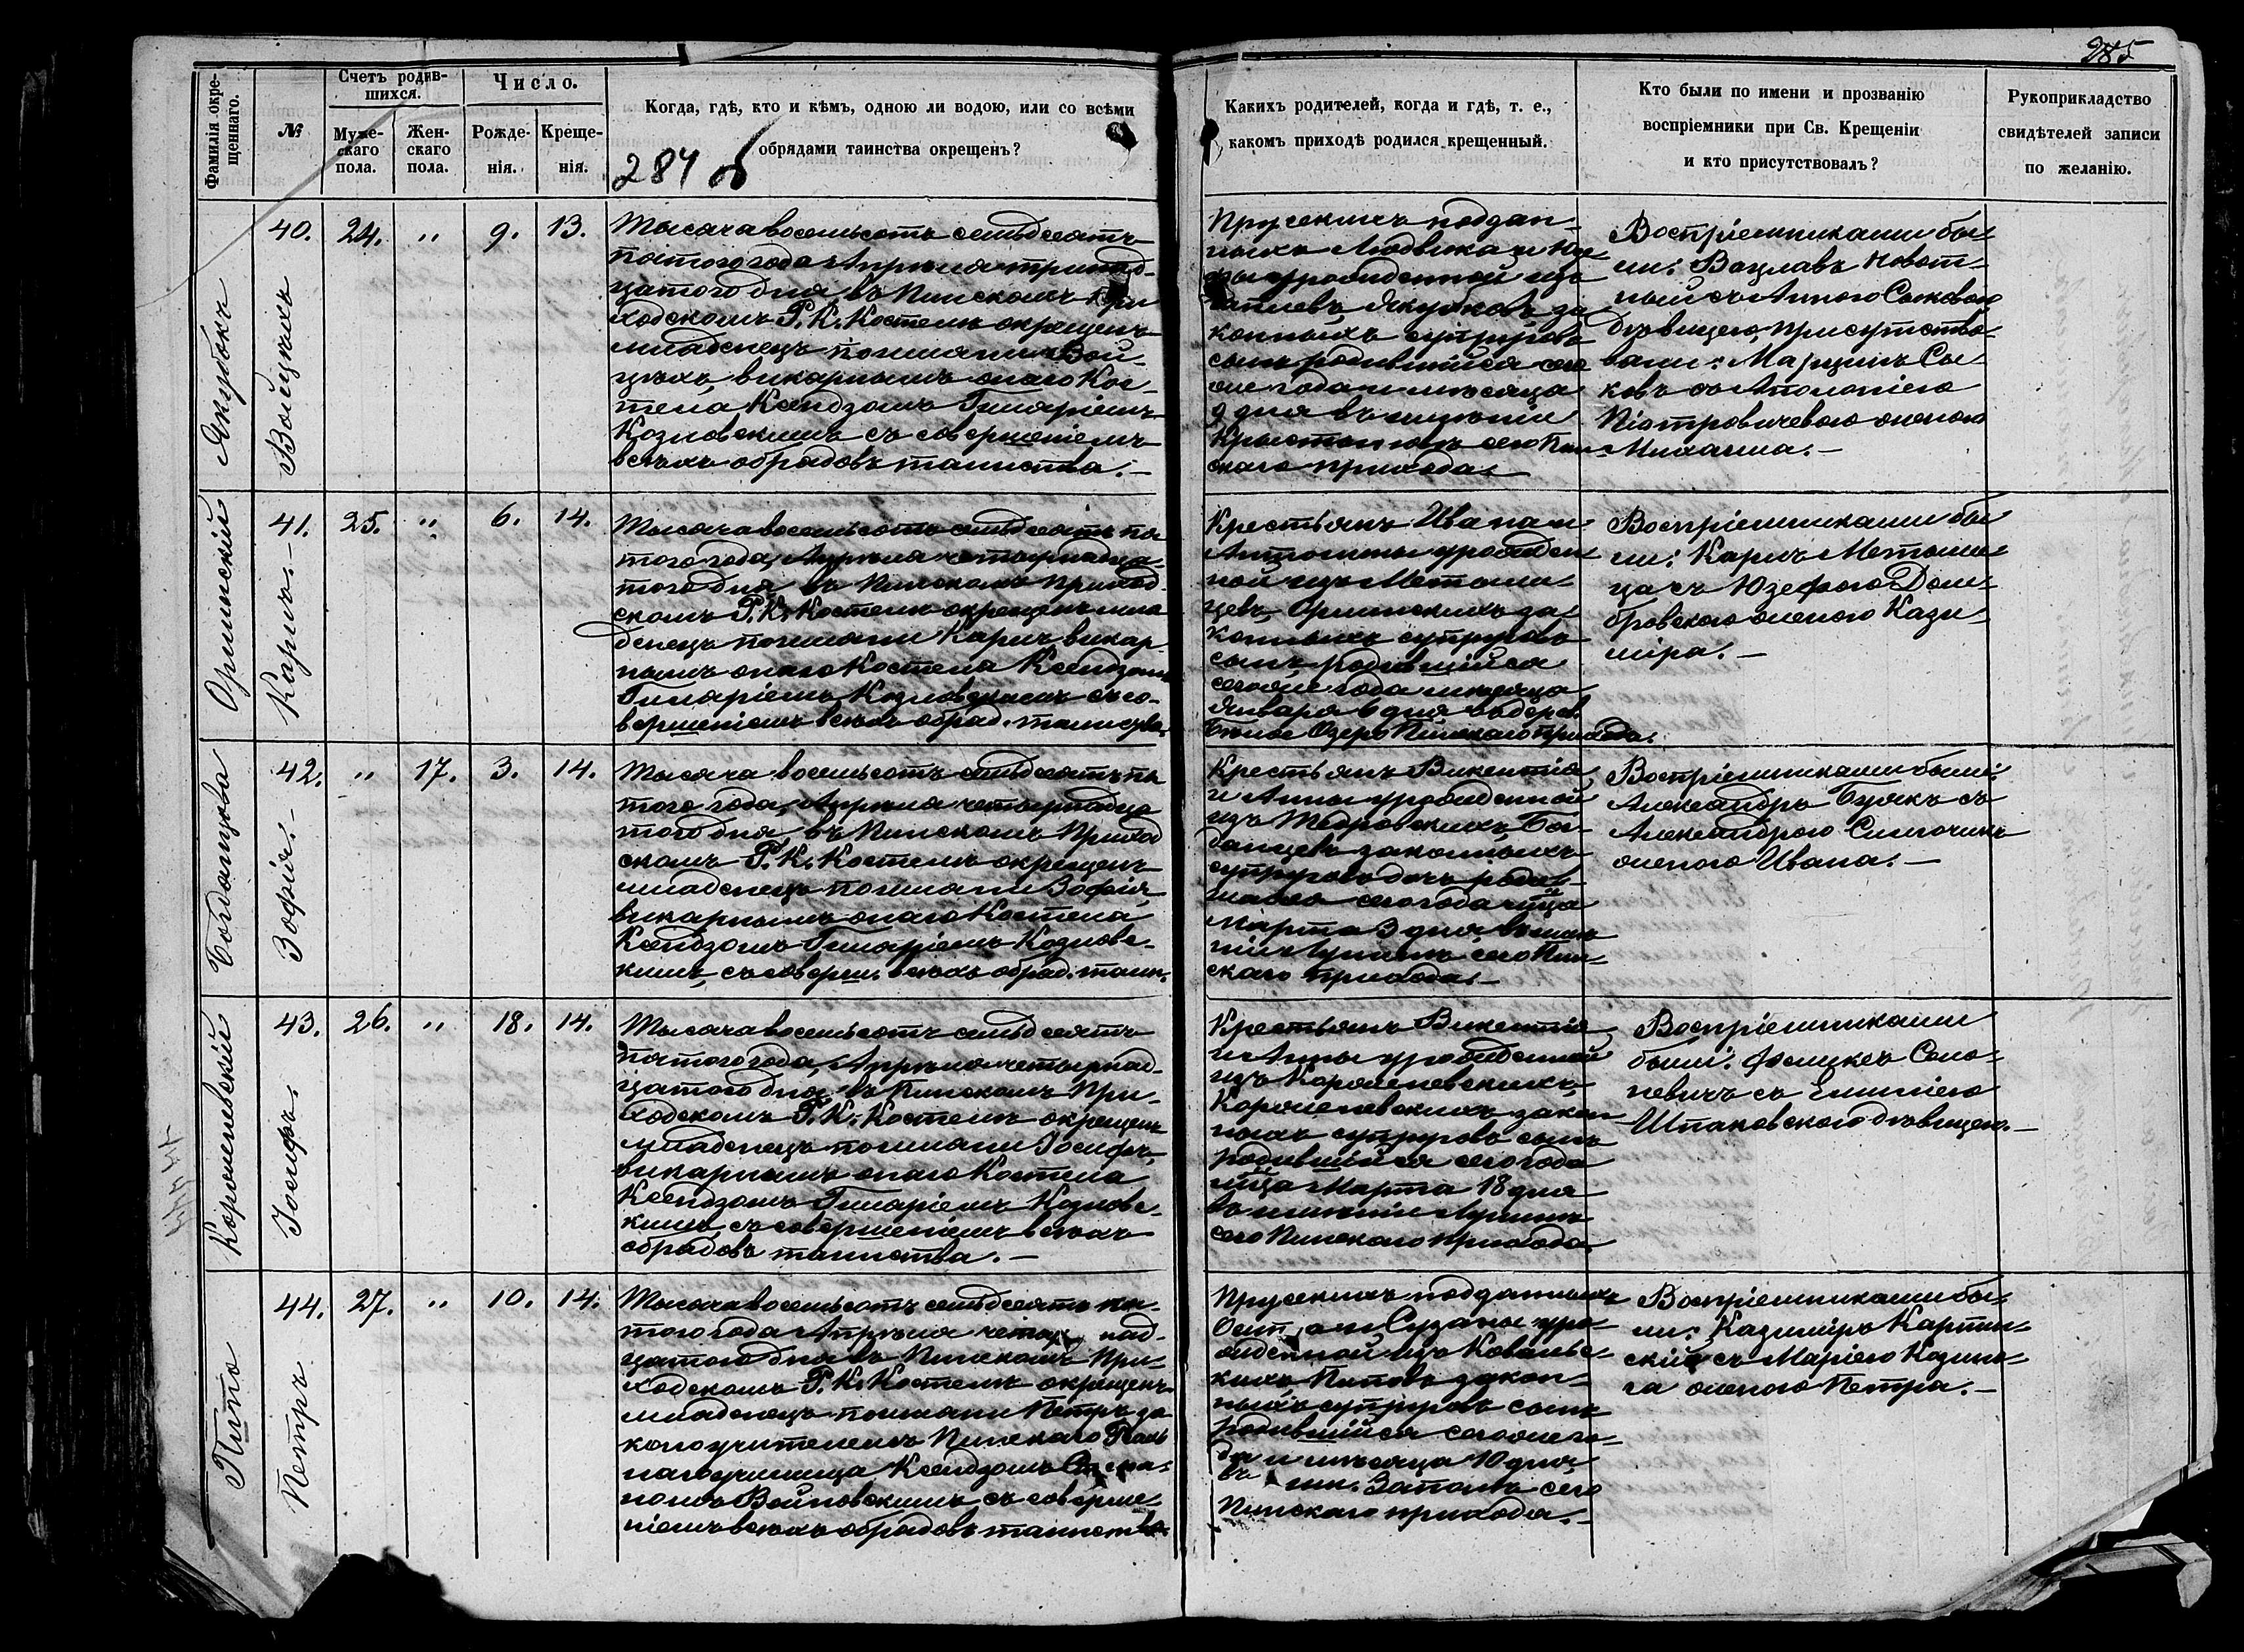 285
Фамилія окре-
щеннаго.
№
Счетъ родив-
шихся.
Муже-
скаго
пола.
Жен-
скаго
пола.
Число.
Рожде-
нія.
Креще-
нія.
Когда, гдѣ, кто и кѣмъ, одною ли водою, или со всѣми
обрядами таинства окрещенъ?
284 об
Какихъ родителей, когда и гдѣ, т. е.,
каком приходѣ родился крещенный.
Кто были по имени и прозванію
воспріемники при Св. Крещеніи
и кто присутствовалъ?
Рукоприкладство
свидѣтелей записи
по желанію.
Якубокъ
Войцѣхъ
40. 24. " 9. 13.
Тысяча восемьсотъ семьдесятъ
пятого года Апрѣля тринад-
цатого дня въ Пинскомъ При
ходскомъ Р. К. Костелѣ окрещенъ
младенецъ по имени Вой-
цѣхъ, викарнымъ онаго Кос-
тела Ксендзомъ Гиляріемъ
Козловскимъ съ совершеніемъ
всѣхъ обрядовъ таинства. —
Прусскихъ поддан-
ныхъ Людвика и
урожденной изъ
Якубковъ за
конныхъ супруговъ
сынъ родившійся сего
же года и мѣсяца
9 дня въ имѣніи
сего Пин-
скаго прихода. —
Воспріемниками бы-
ли: Вацлавъ Новот-
ный съ Анною Сыковою
дѣвицею, присутство-
вали: Марцинъ Сы-
ковъ съ Аполоніею
Піотровичевою женою
Михаила. —
Орлинскій
Карлъ. —
41. 25. " 6. 14.
Тысяча восемьсотъ семьдесятъ пя
того года, Апрѣля четырнадца-
того дня въ Пинскомъ Приход-
скомъ Р. К. Костелѣ окрещенъ мла
денецъ по имени Карлъ викар-
нымъ онаго Костела Ксендзомъ
Гиляріемъ Козловскимъ съ со-
вершеніемъ всѣхъ обряд. таинства.
Крестьянъ Ивана и
Антонины урожден
ной изъ Метели-
цевъ, Орлинскихъ за-
конныхъ супруговъ
сынъ родившійся
сего же года мѣсяца
Января 6 дня въ дерев.
Бѣлое Озеро Пинскаго прихода.
Воспріемниками бы
ли: Карлъ Метели-
ца съ Юзефою Дом-
бровскою женою Кази-
міра. —
Богданцова
Зофія. —
42. " 17. 3. 14.
Тысяча восемьсотъ семьдесятъ пя
того года, Апрѣля четырнадца
того дня въ Пинскомъ Приход
скомъ Р. К. Костелѣ окрещенъ
младенецъ по имени Зофія,
викарнымъ онаго Костела
Ксендзомъ Гиляріемъ Козловс-
кимъ, съ соверш. всѣхъ обряд. таин.
Крестьянъ Викентія
и Анны урожденной
изъ Бог-
данцевъ законныхъ
супруговъ дочь родив-
шаяся сего года м-ца
Марта 3 дня въ имѣ
ніи Лунинъ сего Пин-
скаго прихода. —
Воспріемниками были:
Александръ Буякъ съ
Александрою
женою Ивана. —
Короленевскій
Іосифъ.
43. 26. " 18. 14.
Тысяча восемьсотъ семьдесятъ
пятого года, Апрѣля четырнад-
цатого дня, въ Пинскомъ При-
ходскомъ Р. К. Костелѣ окрещенъ
младенецъ по имени Іосифъ,
викарнымъ онаго Костела
Ксендзомъ Гиляріемъ Козловс-
кимъ, съ совершеніемъ всѣхъ
обрядовъ таинства. —
Крестьянъ Викентія
и Анны урожденной
изъ Короленевскихъ,
Короленевскихъ закон-
ныхъ супруговъ сынъ
родившійся сего года
м-ца Марта 18 дня
въ имѣніи Лунинъ
сего Пинскаго прихода.
Воспріемниками
были: Феликсъ Соло-
невичъ съ Емиліею
Шпаковского дѣвицею. —
Пипа
Петръ
44. 27. " 10. 14.
Тысяча восемьсотъ семьдесятъ пя-
того года Апрѣля четыр над-
цатого дня въ Пинскомъ При-
ходскомъ Р. К. Костелѣ окрещенъ
младенецъ по имени Петръ за
коноучителемъ Пинскаго Реаль
наго училища Ксендзомъ
Войновскимъ съ соверше-
ніемъ всѣхъ обрядовъ таинства.
Прусскихъ подданныхъ
и Сузаны уро-
жденной изъ Ковальс-
кихъ Пиповъ закон-
ныхъ супруговъ сынъ
родившійся сего же го-
да и мѣсяца 10 дня,
въ им. Заполѣ сего
Пинскаго прихода. —
Воспріемниками бы-
ли: Казиміръ Карпин-
скій съ Маріею
женою Петра. —